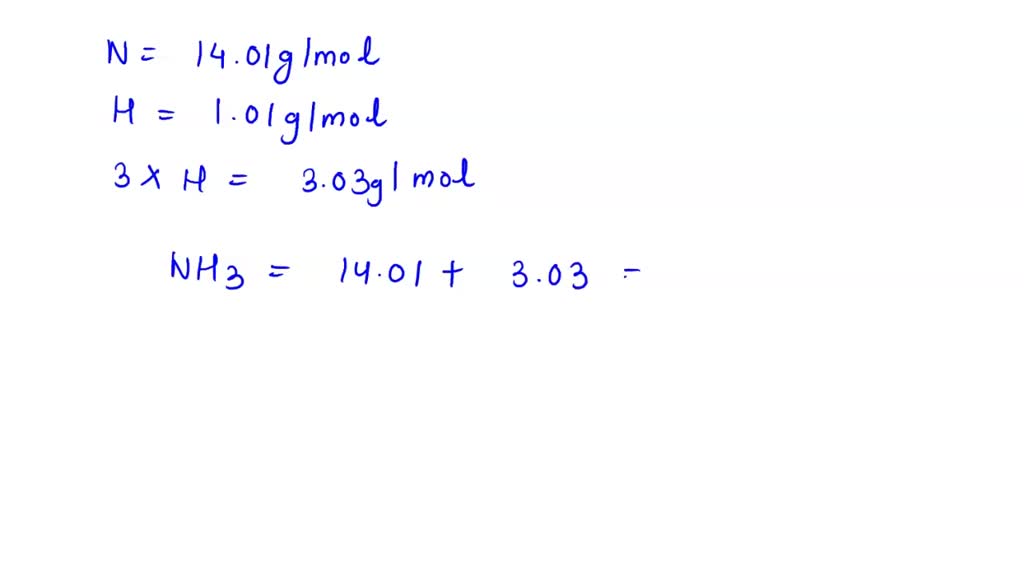 N = 14.01g/mol
H = 1.01g/mol
3 × H = 3.03g/mol
NH3 = 14.01 + 3.03 =